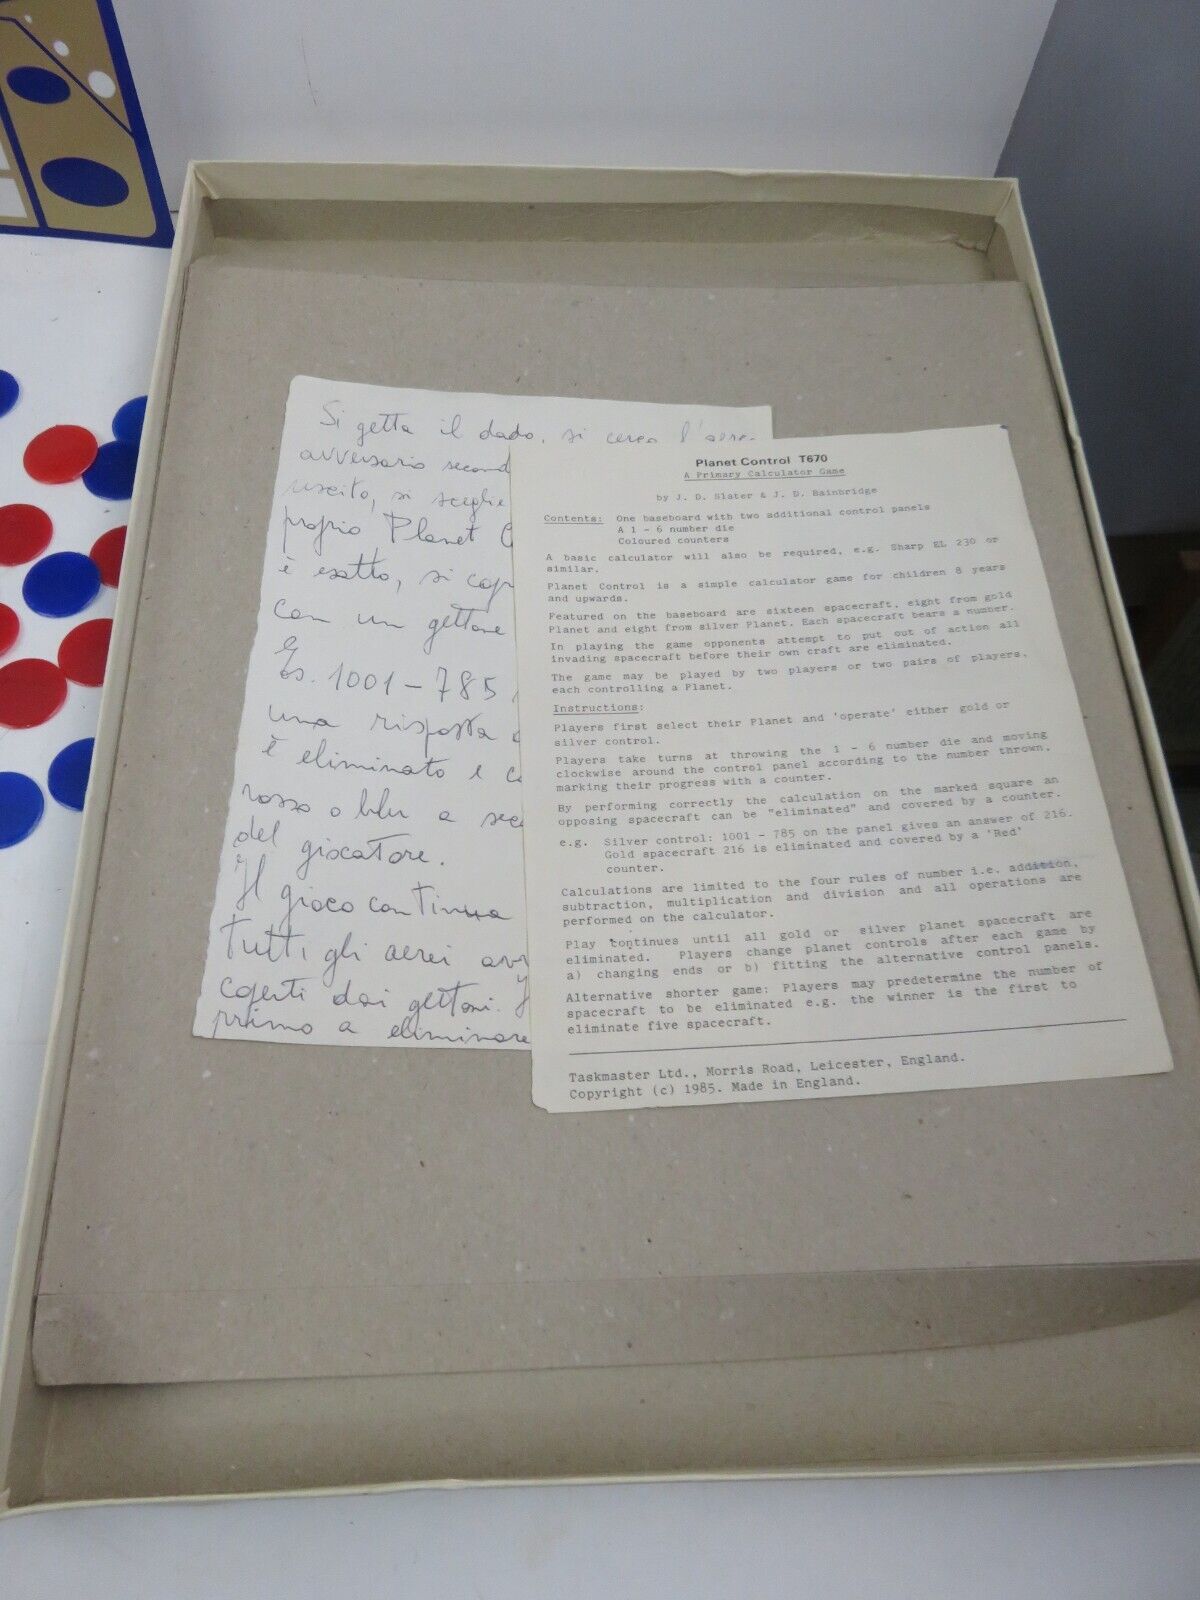 Si getta il dado, si cerca l'aereo
avversario second
uscito, si sceglie
proprio Planet C
è esatto, si cop
con un gettone
Es. 1001 - 785
una risposta
è eliminato e co
rosso o blu a sec
del giocatore.
Il gioco continua
Tutti gli aerei avv
coperti dai gettoni.
primo a eliminare
Planet Control T670
A Primary Calculator Game
by J. D. Slater & J. D. Bainbridge
Contents: One baseboard with two additional control panels
A 1 - 6 number die
Coloured counters
A basic calculator will also be required, e.g. Sharp EL 230 or
similar.
Planet Control is a simple calculator game for children 8 years
and upwards.
Featured on the baseboard are sixteen spacecraft, eight from gold
Planet and eight from silver Planet. Each spacecraft bears a number.
In playing the game opponents attempt to put out of action all
invading spacecraft before their own craft are eliminated.
The game may be played by two players or two pairs of players,
each controlling a Planet.
Instructions:
Players first select their Planet and 'operate' either gold or
silver control.
Players take turns at throwing the 1 - 6 number die and moving
clockwise around the control panel according to the number thrown,
marking their progress with a counter.
By performing correctly the calculation on the marked square an
opposing spacecraft can be "eliminated" and covered by a counter.
e.g. Silver control: 1001 - 785 on the panel gives an answer of 216.
Gold spacecraft 216 is eliminated and covered by a 'Red'
counter.
Calculations are limited to the four rules of number i.e. addition,
subtraction, multiplication and division and all operations are
performed on the calculator.
Play continues until all gold or silver planet spacecraft are
eliminated. Players change planet controls after each game by
a) changing ends or b) fitting the alternative control panels.
Alternative shorter game: Players may predetermine the number of
spacecraft to be eliminated e.g. the winner is the first to
eliminate five spacecraft.
Taskmaster Ltd., Morris Road, Leicester, England.
Copyright (c) 1985. Made in England.